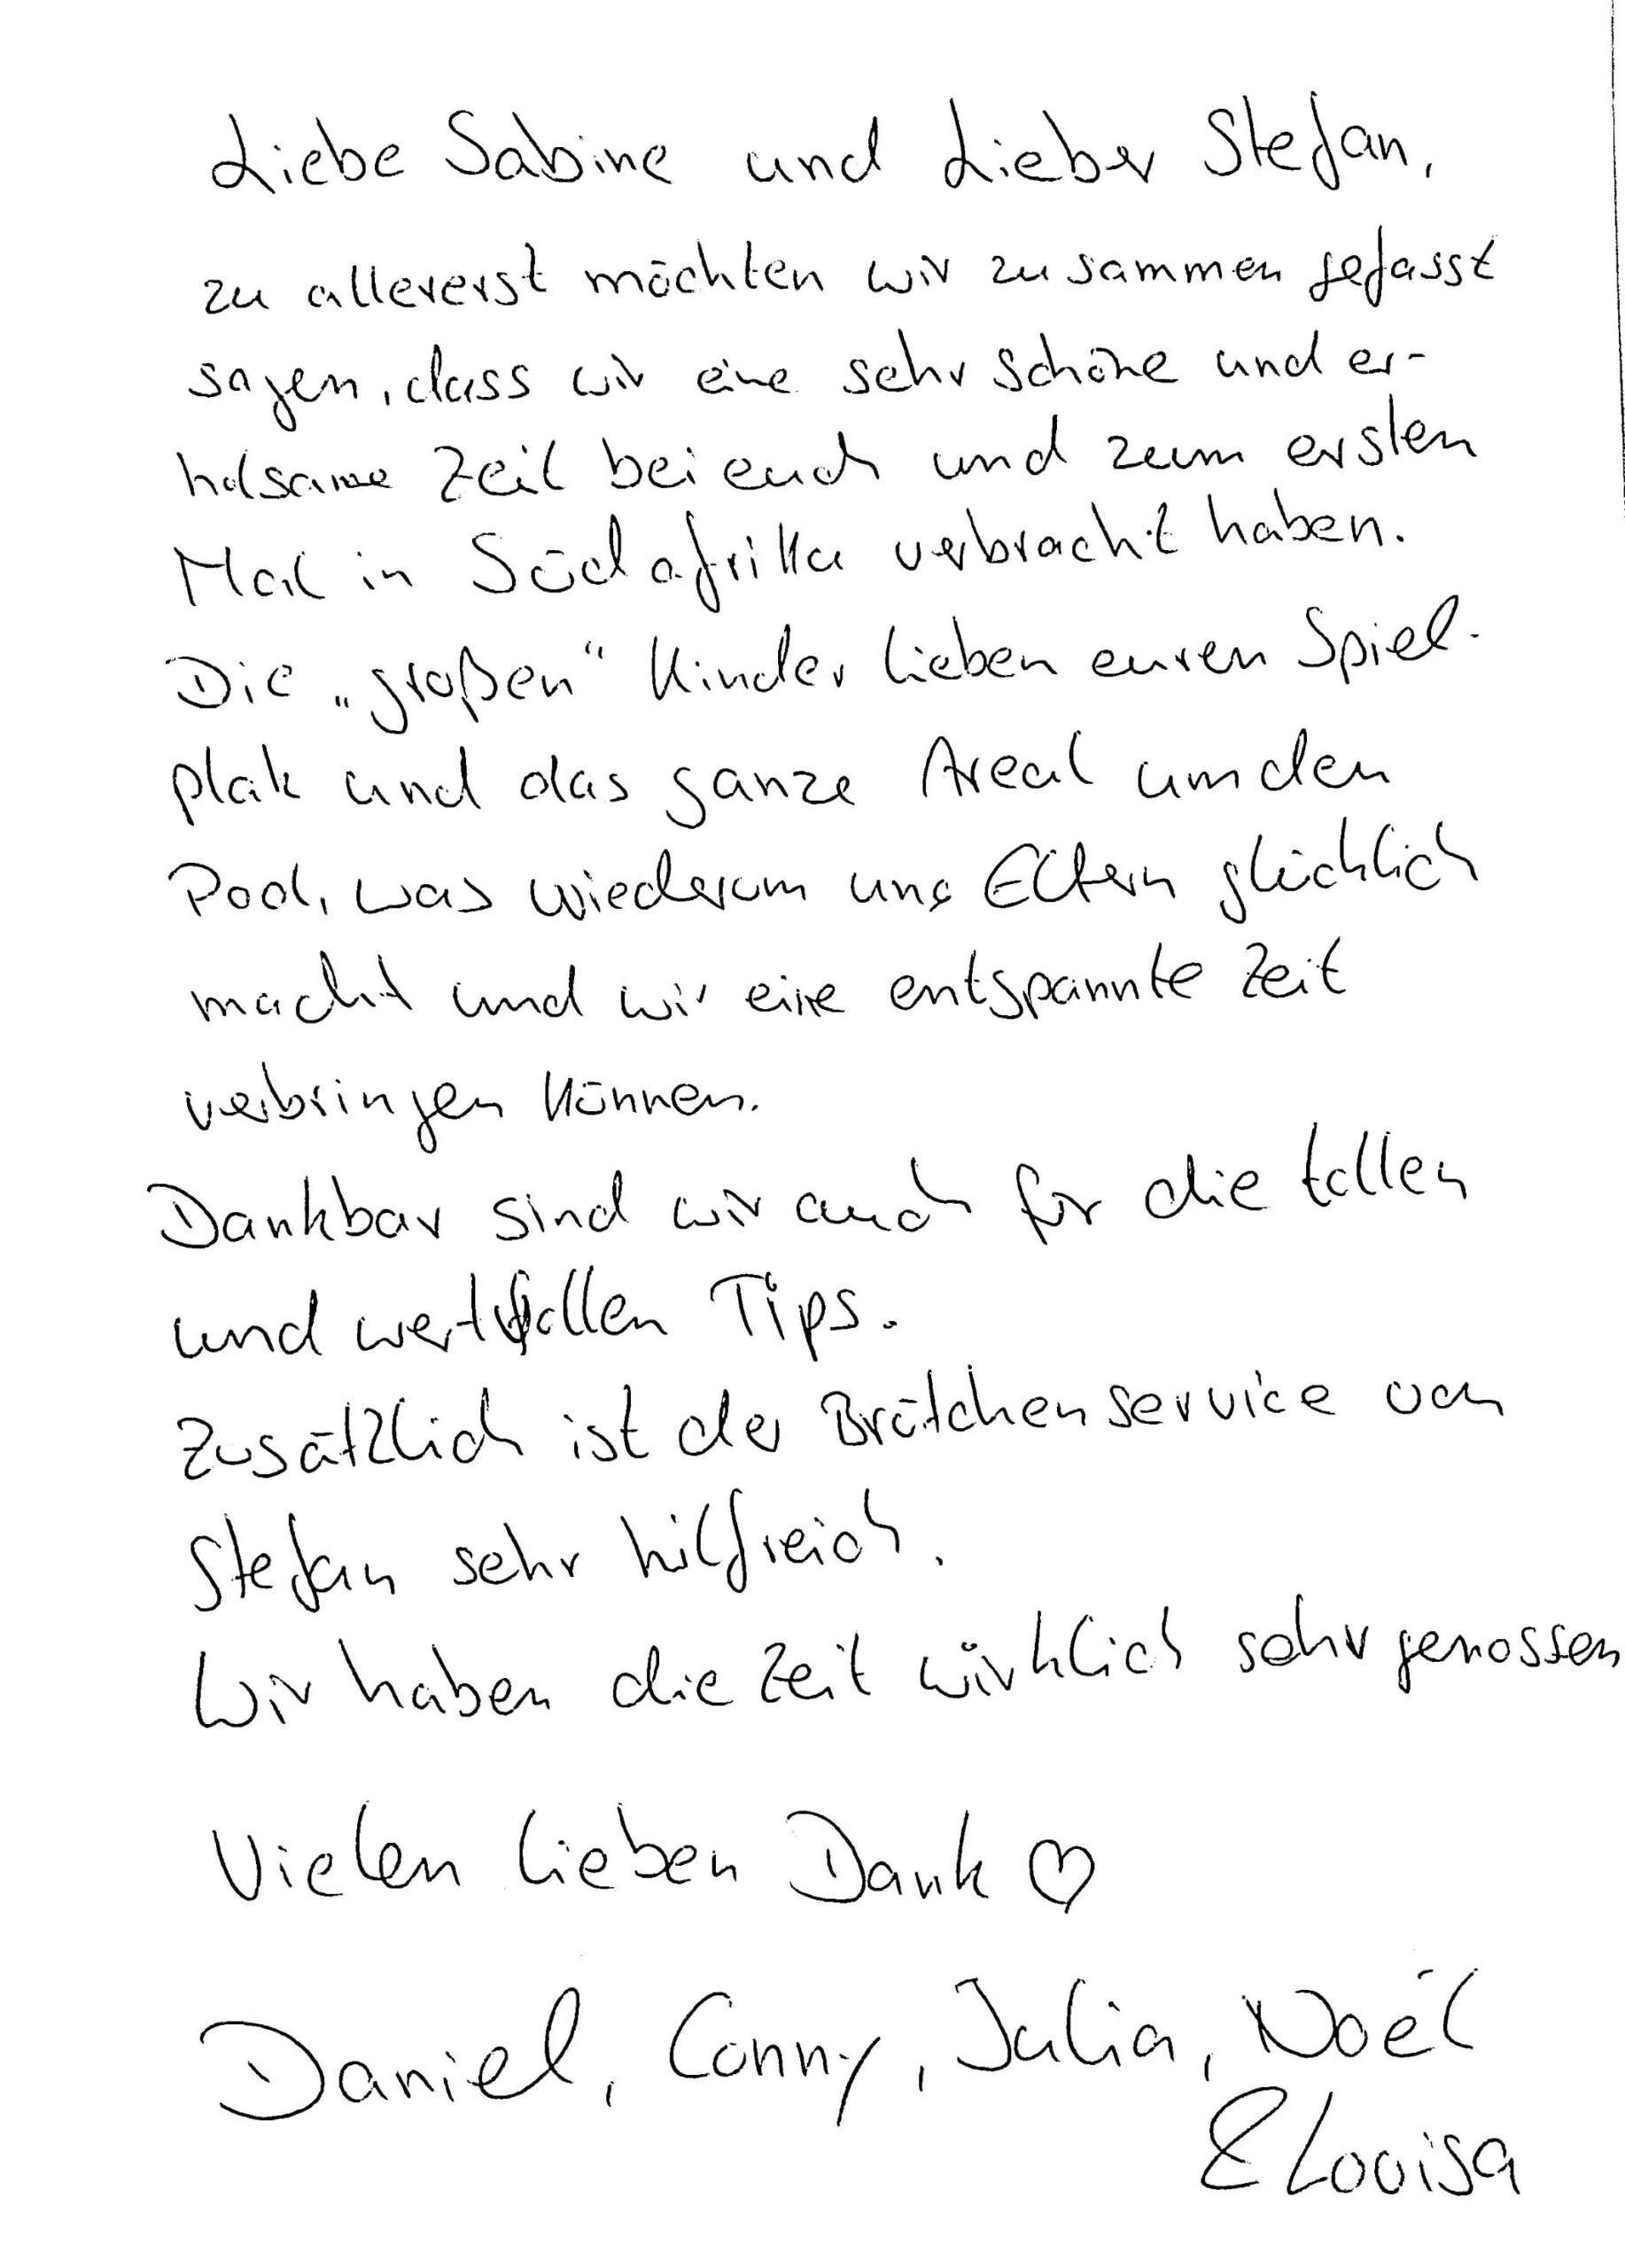 Liebe Sabine und Lieber Stefan,
zu allererst möchten wir zusammen gefasst
sagen, dass wir eine sehr schöne und er-
holsame Zeit bei euch und zum ersten
Mal in Südafrika verbracht haben.
Die „großen“ Kinder lieben euren Spiel-
platz und das ganze Areal um den
Pool, was wiederum uns Eltern glücklich
macht und wir eine entspannte Zeit
verbringen können.
Dankbar sind wir auch für die tollen
und wertvollen Tips.
Zusätzlich ist der Brötchenservice von
Stefan sehr hilfreich.
Wir haben die Zeit wirklich sehr genossen
Vielen lieben Dank ♡
Daniel, Conny, Julia, Noél
& Louisa